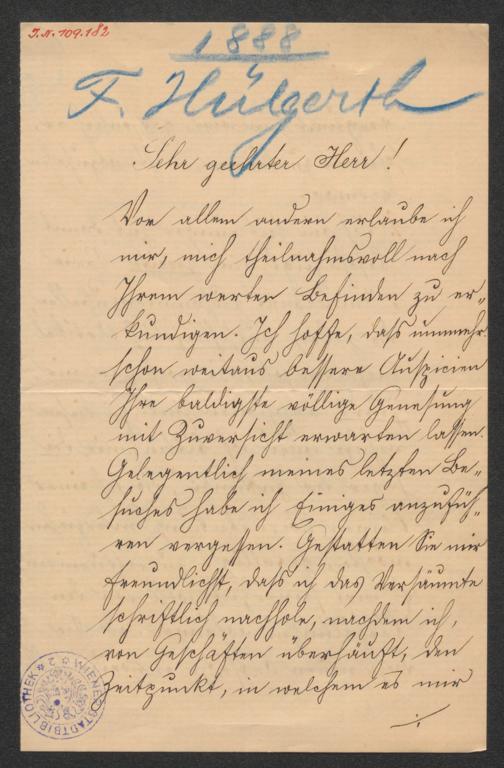 J.N. 109.182
1888
F. Hülgerth
Sehr geehrter Herr!
Vor allem andern erlaube ich
mir, mich theilnahmsvoll nach
Ihrem werten Befinden zu er-
kundigen. Ich hoffe, dass nunmehr
schon weitaus bessere Auspicien
Ihre baldigste völlige Genesung
mit Zuversicht erwarten lassen.
Gelegentlich meines letzten Be-
suches habe ich Einiges anzufüh-
ren vergessen. Gestatten Sie mir
freundlichst, dass ich das Versäumte
schriftlich nachhole, nachdem ich,
von Geschäften überhäuft, den
Zeitpunkt, in welchem es mir
./.
WIENER STADTBIBLIOTHEK